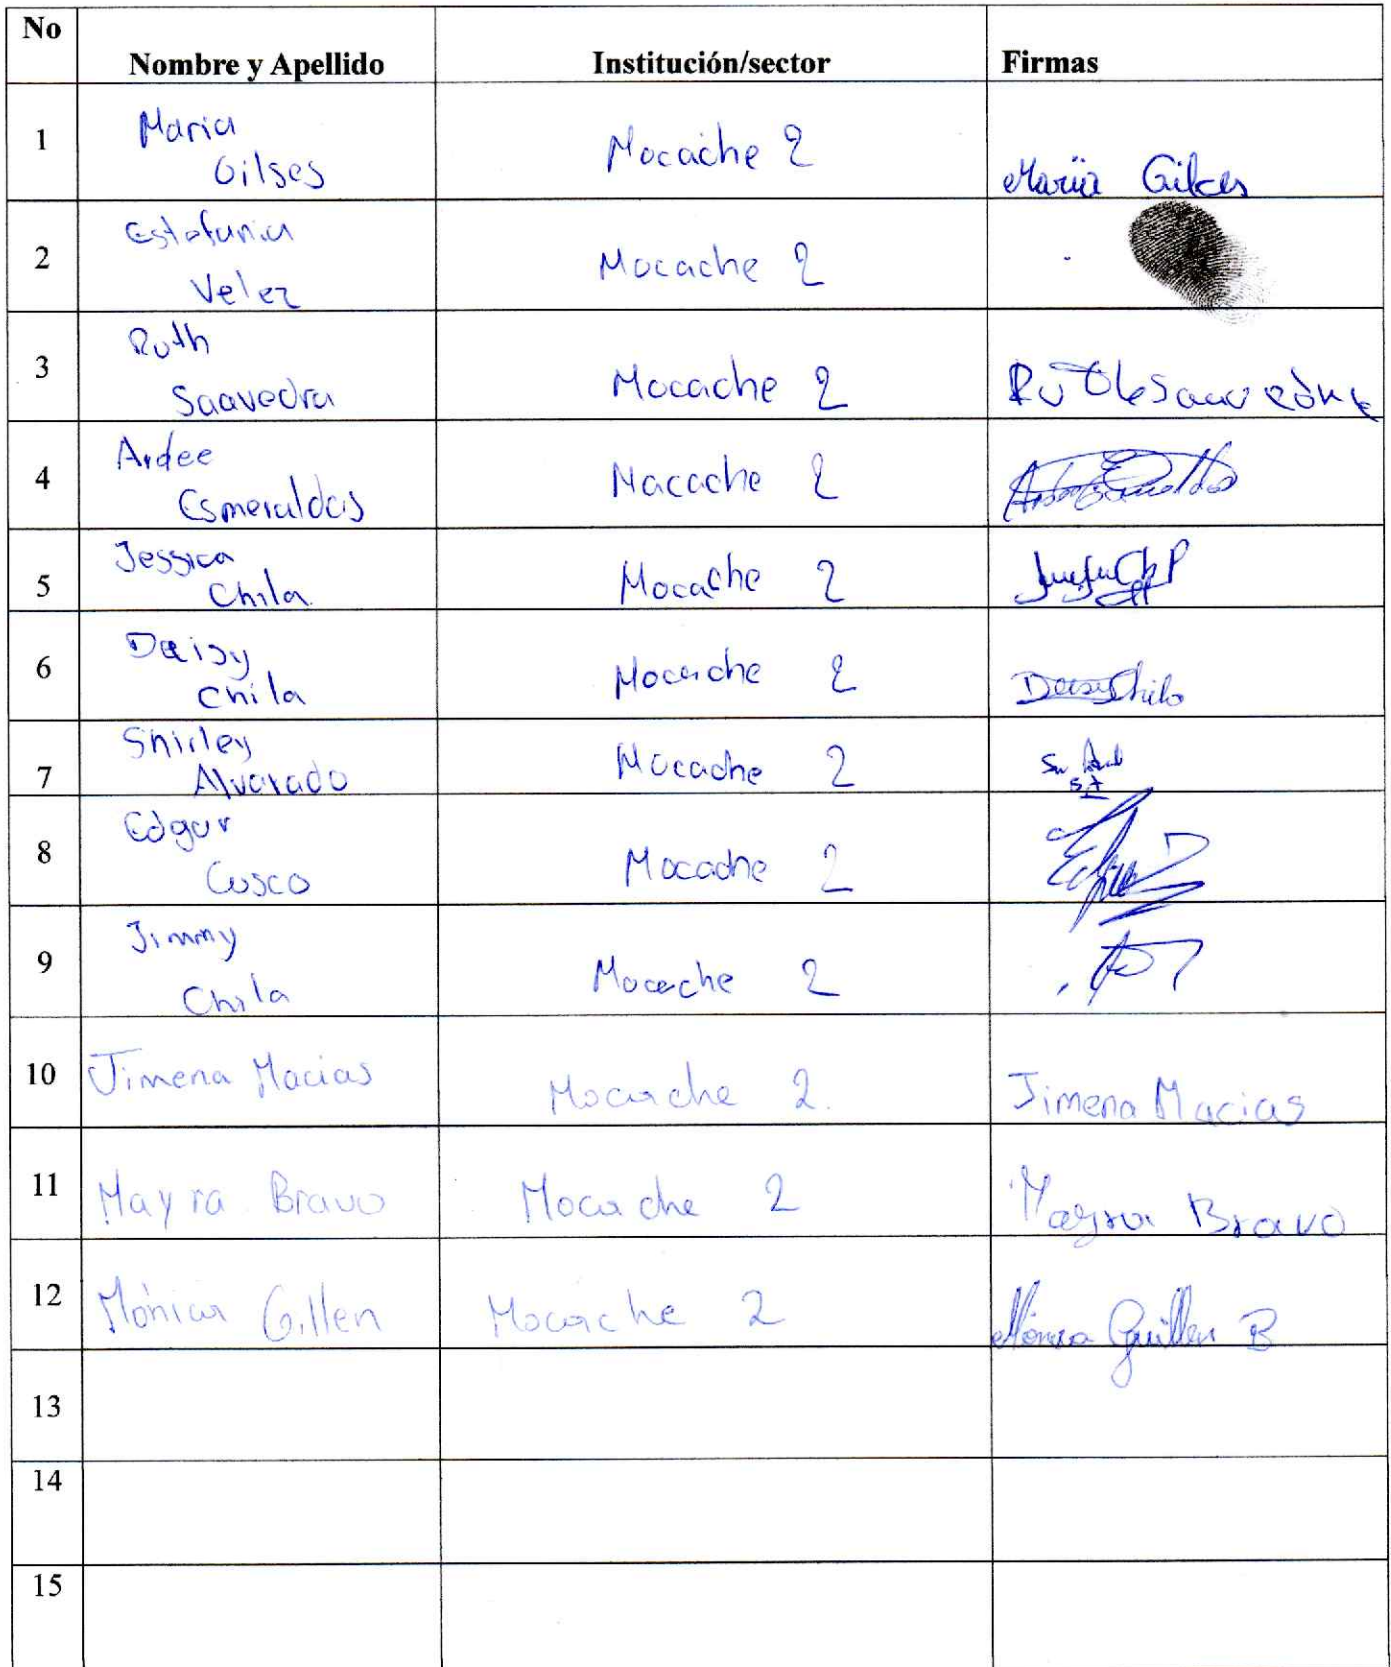 No Nombre y Apellido Institución/sector Firmas
1 Maria Gilses Mocache 2 Maria Gilces
2 Estefania Velez Mocache 2
3 Ruth Saavedra Mocache 2
4 Aidee Esmeraldas Macache 2
5 Jessica Chila Mocache 2
6 Daisy Chila Mocache 2 Daisy Chila
7 Shirley Alvarado Mocache 2
8 Edgar Cusco Mocache 2
9 Jimmy Chila Mocache 2
10 Jimena Macias Mocache 2. Jimena Macias
11 Mayra Bravo Mocache 2 Mayra Bravo
12 Mónica Gillen Mocache 2 Mónica Guillen B
13
14
15